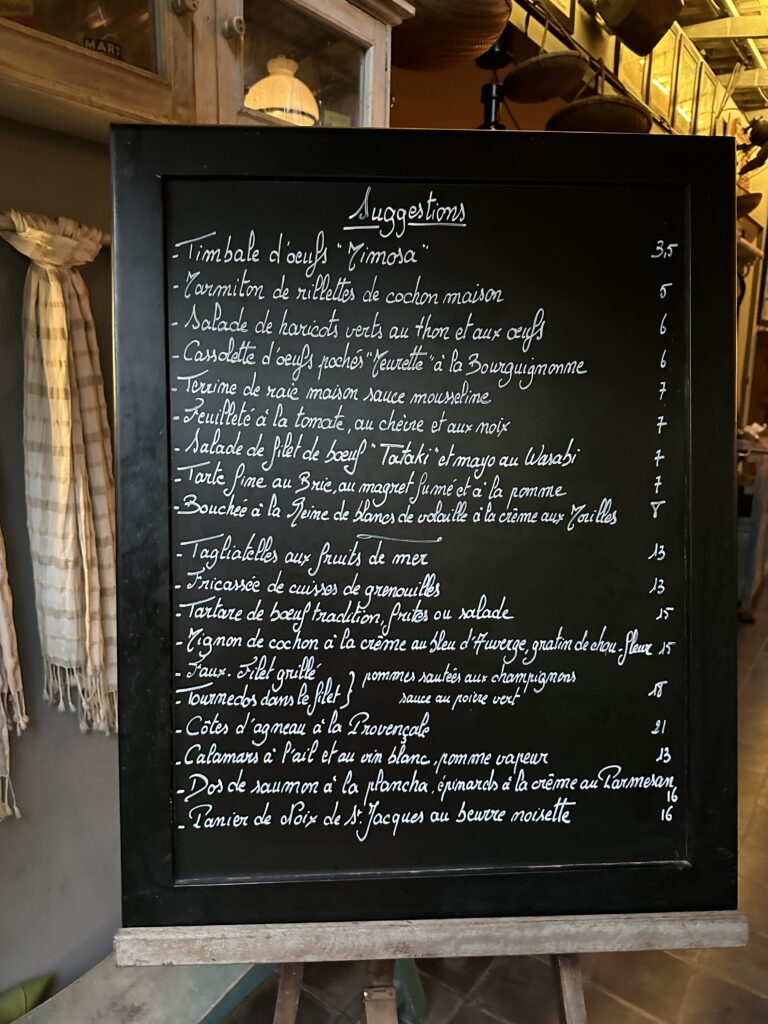 MART
Suggestions
- Timbale d'œufs "Mimosa" 3,5
- Marmiton de rillettes de cochon maison 5
- Salade de haricots verts au thon et aux œufs 6
- Cassolette d'œufs pochés "Meurette" à la Bourguignonne 6
- Terrine de raie maison sauce mousseline 7
- Feuilleté à la tomate, au chèvre et aux noix 7
- Salade de filet de bœuf "Tataki" et mayo au Wasabi 7
- Tarte fine au Brie, au magret fumé et à la pomme 7
- Bouchée à la Reine de blancs de volaille à la crème aux Morilles 8
- Tagliatelles aux fruits de mer 13
- Fricassée de cuisses de grenouilles 13
- Tartare de bœuf tradition, frites ou salade 15
- Mignon de cochon à la crème au bleu d'Auverge, gratin de chou-fleur 15
- Faux-Filet grillé } pommes sautées aux champignons
- Tournedos dans le filet } sauce au poivre vert 18
- Côtes d'agneau à la Provençale 21
- Calamars à l'ail et au vin blanc, pomme vapeur 13
- Dos de saumon à la plancha, épinards à la crème au Parmesan
16
- Panier de Noix de St Jacques au beurre noisette 16